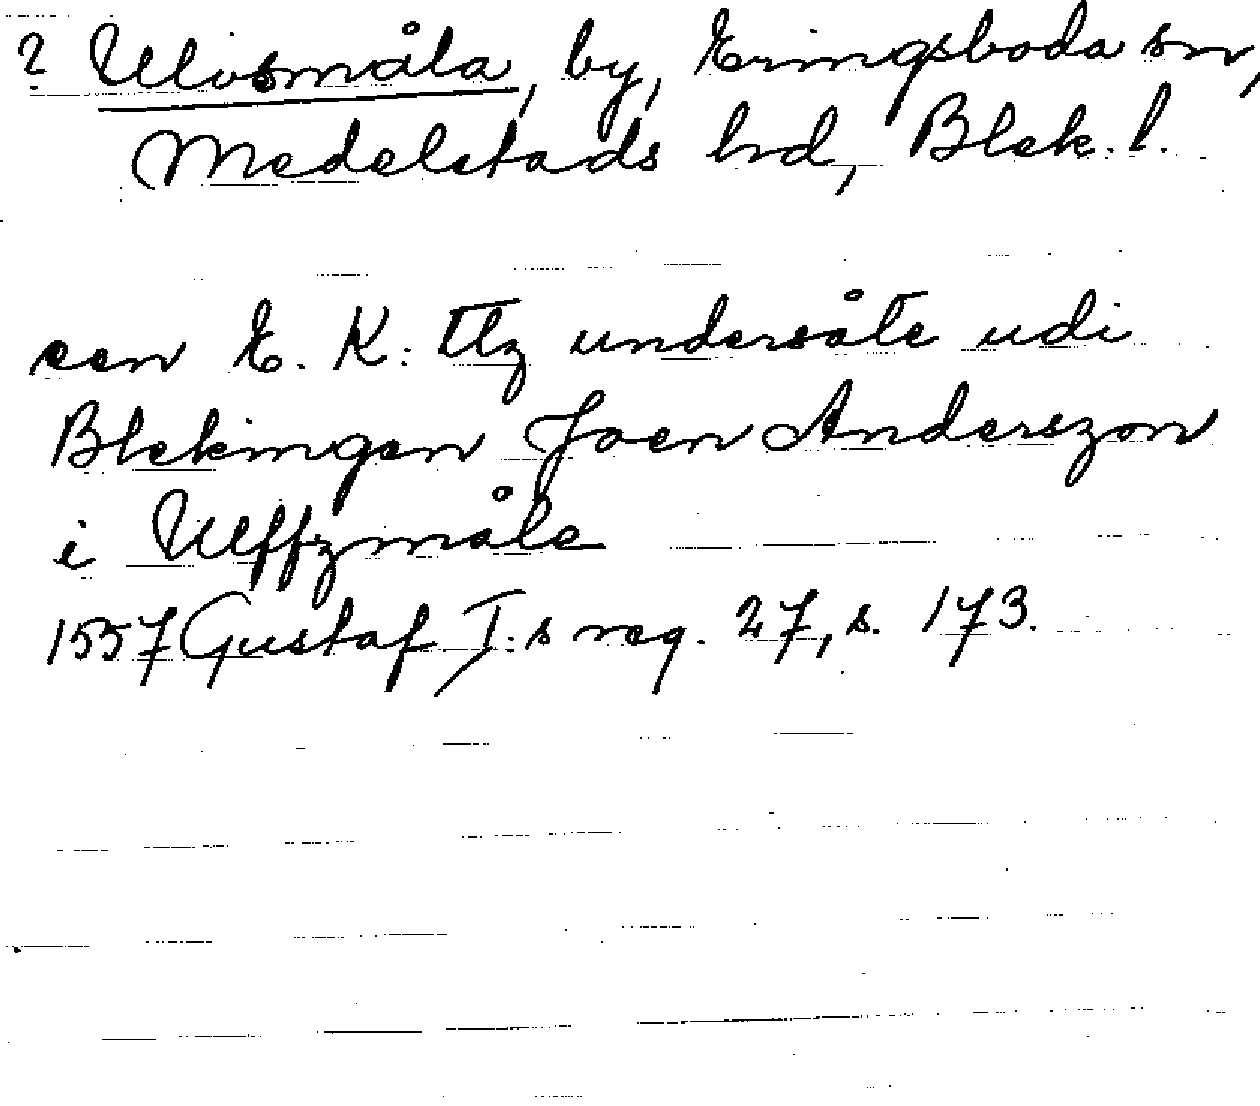 ? Ulvsmåla, by, Eringsboda sn,
Medelstads hd, Blek. l.
een E. K: Ttz undersåte udi
Blekingen Joen Anderszon
i Ulffzmåle
1557 Gustaf I:s reg. 27, s. 173.